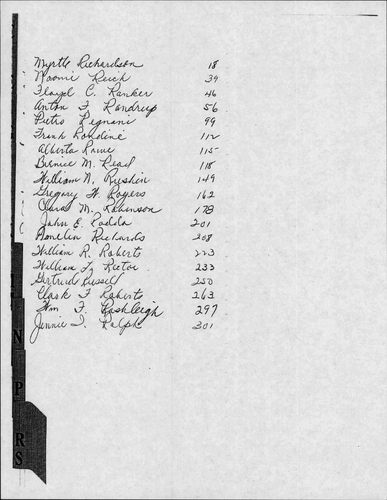 Myrtle Richardson 18
Naomi Reich 34
Floyd C. Ranker 46
Anton F Rondrup 56
Pietro Regnani 99
Frank Rondine 112
Alberta Rowe 115
Bernice M. Read 118
William N. Rushin 149
Gregory W. Rogers 162
Clara M. Robinson 178
John E. Rodda 201
Amelia Richards 208
William R. Roberts 223
William 233
Gertrude Russell 250
Clark F Roberts 263
Wm F. Rashleigh 297
Jennie I. Ralph 301
N
P
RS